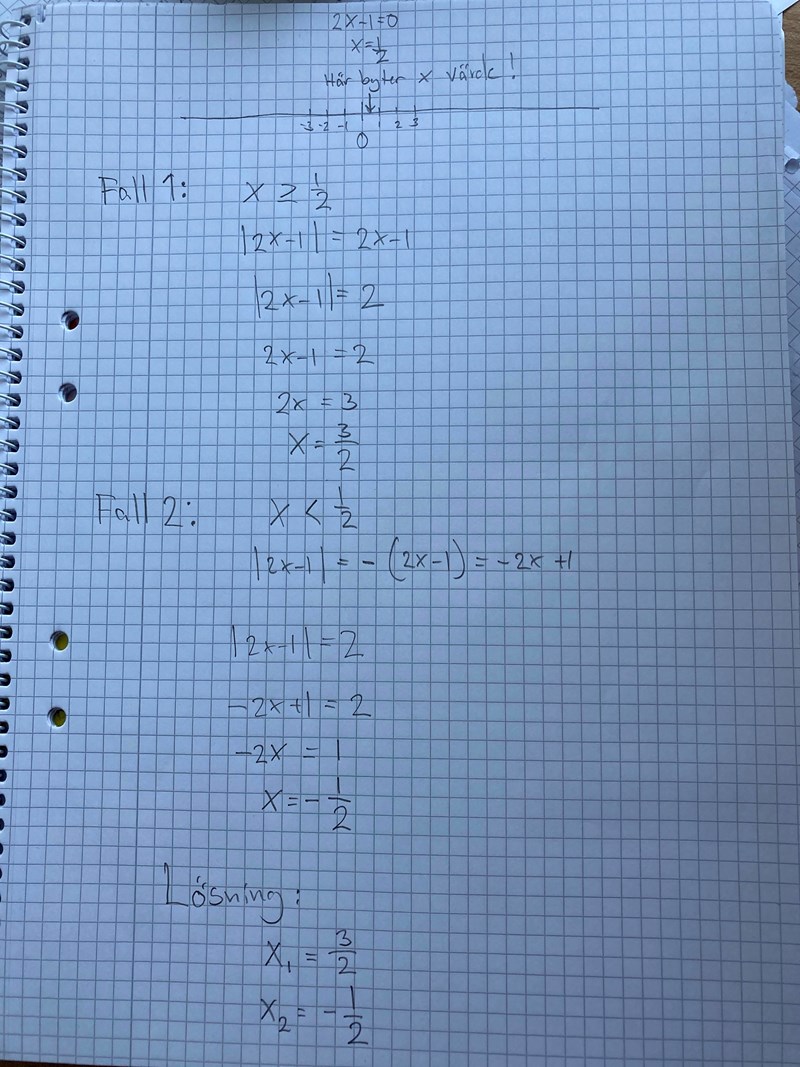 2x-1=0
x=1/2
Här byter x värde!
-3 -2 -1 1 2 3
0
Fall 1: x ≥ 1/2
|2x-1| = 2x-1
|2x-1| = 2
2x-1 = 2
2x = 3
x = 3/2
Fall 2: x < 1/2
|2x-1| = -(2x-1) = -2x+1
|2x-1| = 2
-2x+1 = 2
-2x = 1
x = -1/2
Lösning:
x₁ = 3/2
x₂ = -1/2